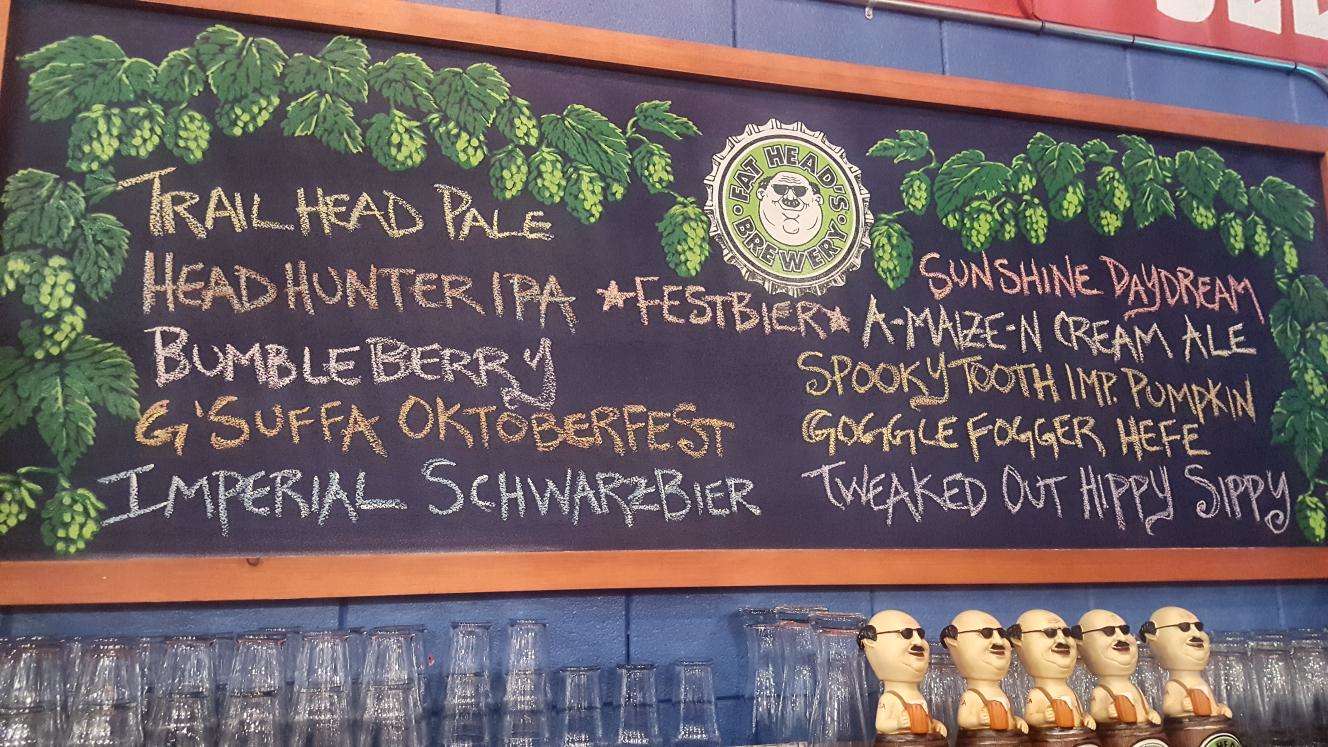 FAT HEAD'S
BREWERY
TRAIL HEAD PALE
HEAD HUNTER IPA
BUMBLE BERRY
G'SUFFA OKTOBERFEST
IMPERIAL SCHWARZBIER
★FESTBIER★
SUNSHINE DAYDREAM
A-MAIZE-N CREAM ALE
SPOOKY TOOTH IMP. PUMPKIN
GOGGLE FOGGER HEFE
TWEAKED OUT HIPPY SIPPY